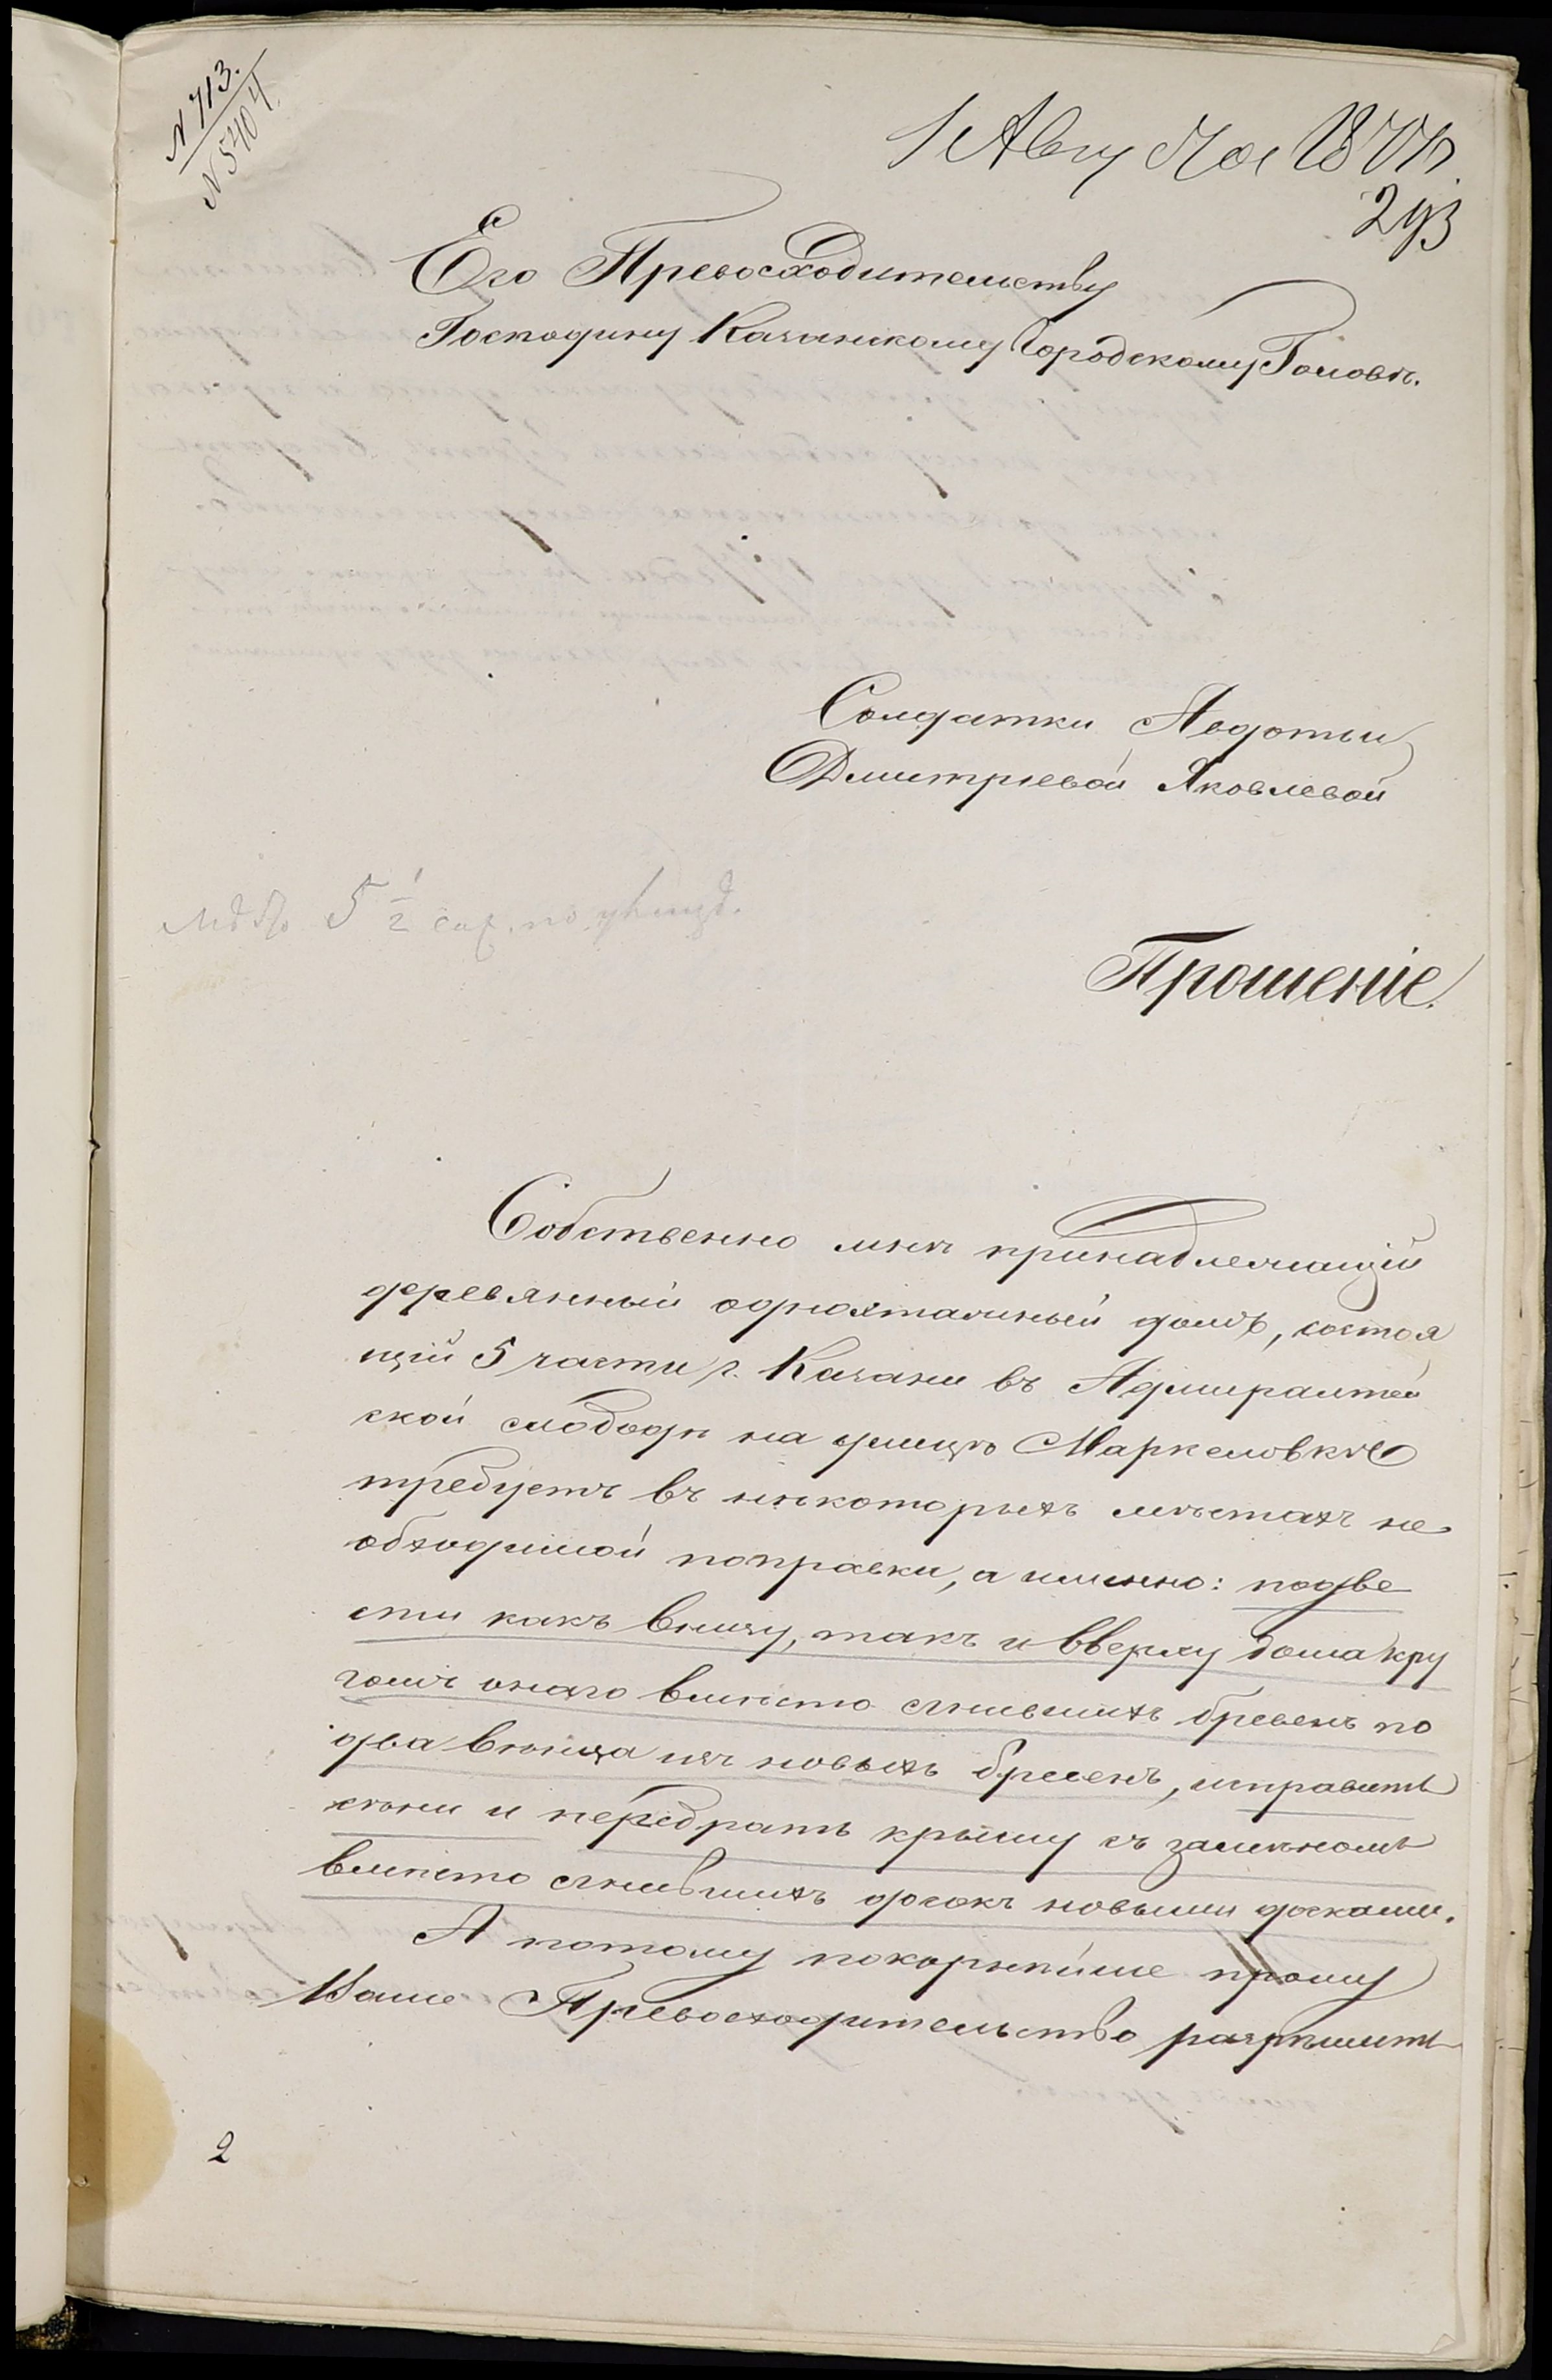 N 713.
N 5404
1 Августа 1877
293
Его Превосходительству
Господину Казанскому Городскому Головѣ.
Солдатки Авдотьи
Дмитріевой Яковлевой
5 1/2 саж. по улицѣ.
Прошеніе.
Собственно мнѣ принадлежащій
деревянный одноэтажный домъ, состоя
щій 5 части г. Казани въ Адмиралтей
ской слободѣ на улицѣ Маркеловкѣ
требуетъ въ нѣкоторыхъ мѣстахъ не
обходимой поправки, а именно: подве
сти какъ внизу, такъ и вверху дома кру
гомъ онаго вмѣсто сгнившихъ бревенъ по
два вѣнца изъ новыхъ бревенъ, исправить
сѣни и передрать крышу съ замѣномъ
вмѣсто сгнившихъ досокъ новыми досками.
А потому покорнѣйше прошу
Ваше Превосходительство разрѣшить
2